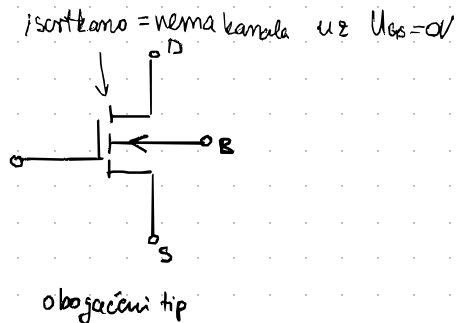 iscrtkano = nema kanala uz U_GS = 0V
D
B
S
obogaćeni tip